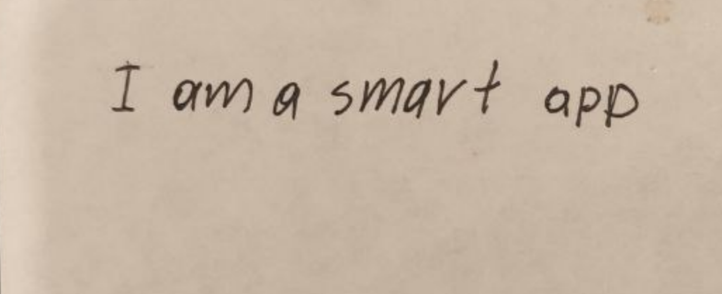 I am a smart app